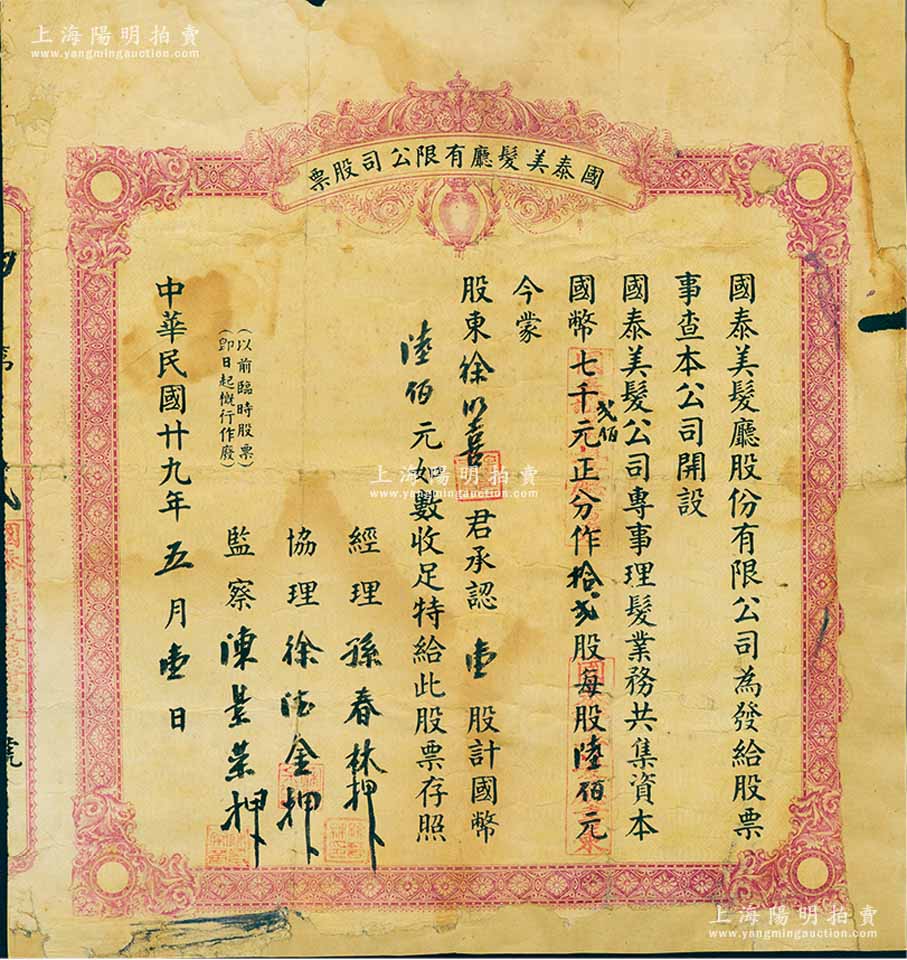 上海陽明拍賣
www.yangmingauction.com
國泰美髮廳有限公司股票
國泰美髮廳股份有限公司為發給股票
事查本公司開設
國泰美髮公司專事理髮業務共集資本
國幣七千貳佰元正分作拾貳股每股陸佰元
今蒙
股東徐 善君承認壹股計國幣
陸佰元如數收足特給此股票存照
經理孫春林押
協理徐 金押
監察陳景榮押
(以前臨時股票)
(即日起慨行作廢)
中華民國廿九年五月壹日
上海陽明拍賣
www.yangmingauction.com
上海陽明拍賣
www.yangmingauction.com